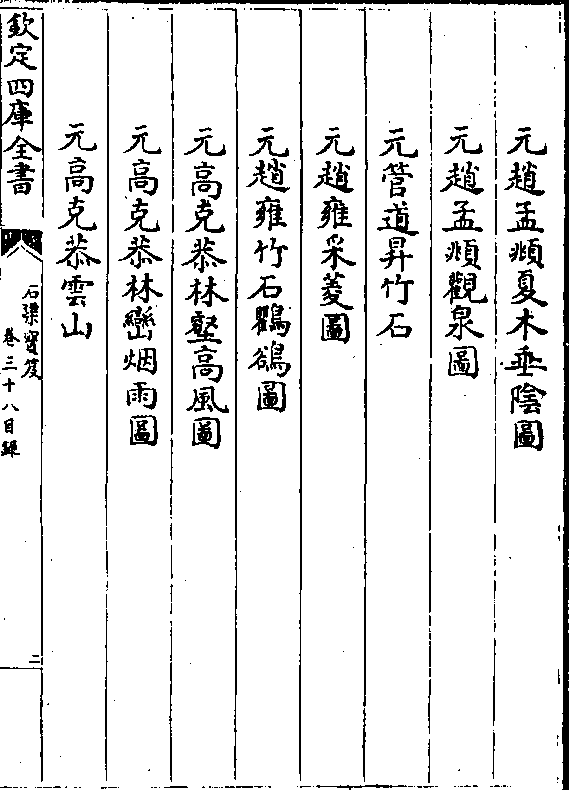 元趙孟頫夏木垂陰圖
元趙孟頫觀泉圖
元管道昇竹石
元趙雍采菱圖
元趙雍竹石鸜鵒圖
元高克恭林壑高風圖
元高克恭林巒烟雨圖
元高克恭雲山
欽定四庫全書
石渠寶笈
卷三十八目録
二